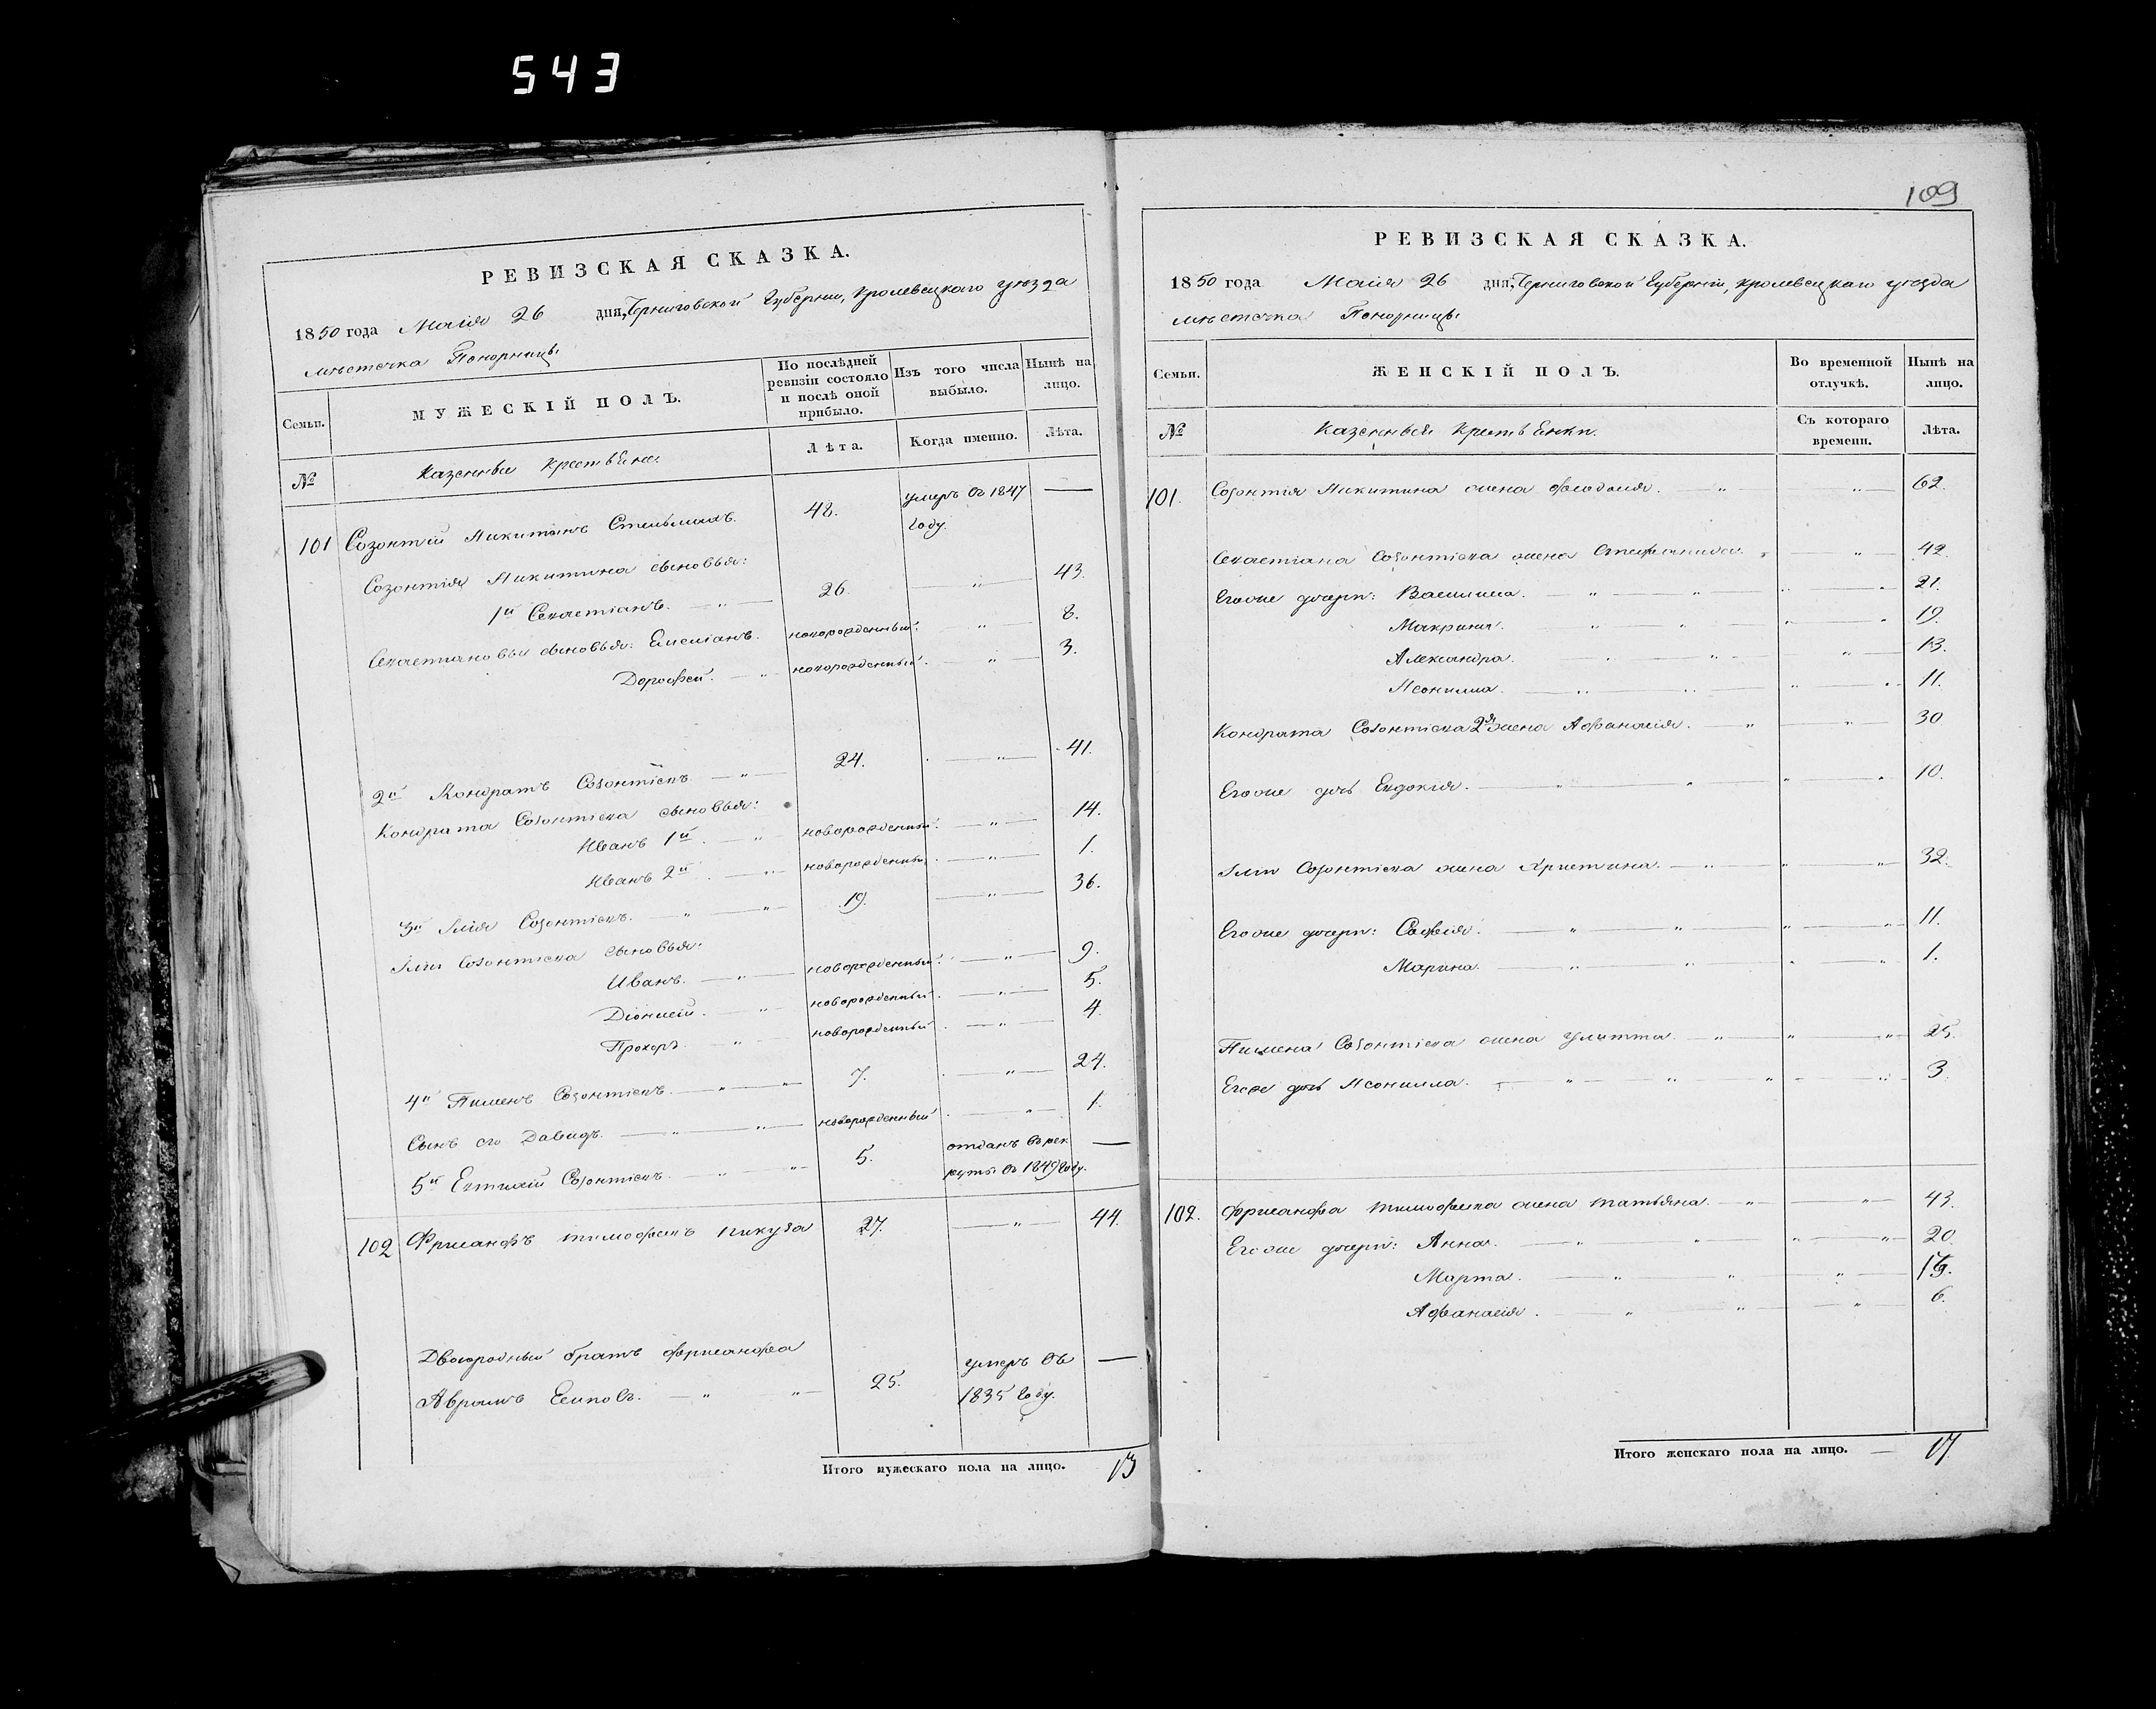 543
РЕВИЗСКАЯ СКАЗКА.
1850 года Маія 26 дня, Черниговской Губерніи, Кролевецкаго уѣзда
мѣстечка Понорницы
Семьи.
МУЖЕСКІЙ ПОЛЪ.
По послѣдней ревизіи состояло и послѣ оной прибыло.
Изъ того числа выбыло.
Нынѣ на лицо.
№
Казенные крестьяне
Лѣта.
Когда именно.
Лѣта.
101 Созонтій Никитинъ 48. умеръ въ 1847 году. —
Созонтія Никитина сыновья:
1й Севастіанъ. 26. 43.
Севастіановы сыновья: Емеліанъ. новорожденный. 8.
Дорофей. новорожденный. 3.
2й Кондратъ Созонтіевъ 24. 41.
Кондрата Созонтіева сыновья:
Иванъ 1й. новорожденный. 14.
Иванъ 2й. новорожденный. 1.
3й Илія Созонтіевъ. 19. 36.
Иліи Созонтіева сыновья:
Иванъ. новорожденный. 9.
Діонисій. новорожденный. 5.
Прохоръ. новорожденный. 4.
4й Пименъ Созонтіевъ. 7. 24.
Сынъ его Давидъ. новорожденный. 1.
5й Евтихій Созонтіевъ. 5. отданъ въ рекруты въ 1849 году. —
102 Тимофеевъ Пикуза 27. 44.
Двоюродный братъ
Аврамъ 25. умеръ въ 1835 году. —
Итого мужескаго пола на лицо. 13
109
РЕВИЗСКАЯ СКАЗКА.
1850 года Маія 26 дня, Черниговской Губерніи, Кролевецкаго уѣзда
мѣстечка Понорницы
Семьи.
ЖЕНСКІЙ ПОЛЪ.
Во временной отлучкѣ.
Нынѣ на лицо.
№
Казенныя крестьянки.
Съ котораго времени.
Лѣта.
101. Созонтія Никитина жена Феодосія. 62.
Севастіана Созонтіева жена Стефанида. 42.
Его же дочери: Василиса. 21.
Макрина. 19.
Александра. 13.
Неонилла. 11.
Кондрата Созонтіева 2я жена Афанасія. 30
Его же дочь Евдокія. 10.
Иліи Созонтіева жена Христина. 32.
Его же дочери: Софія. 11.
Марина. 1.
Пимена Созонтіева жена Улитта. 25.
Его же дочь Неонилла. 3.
102. Тимофеева жена Татьяна. 43.
Его же дочери: Анна. 20.
Марта.
Афанасія. 6.
Итого женскаго пола на лицо. — 17.